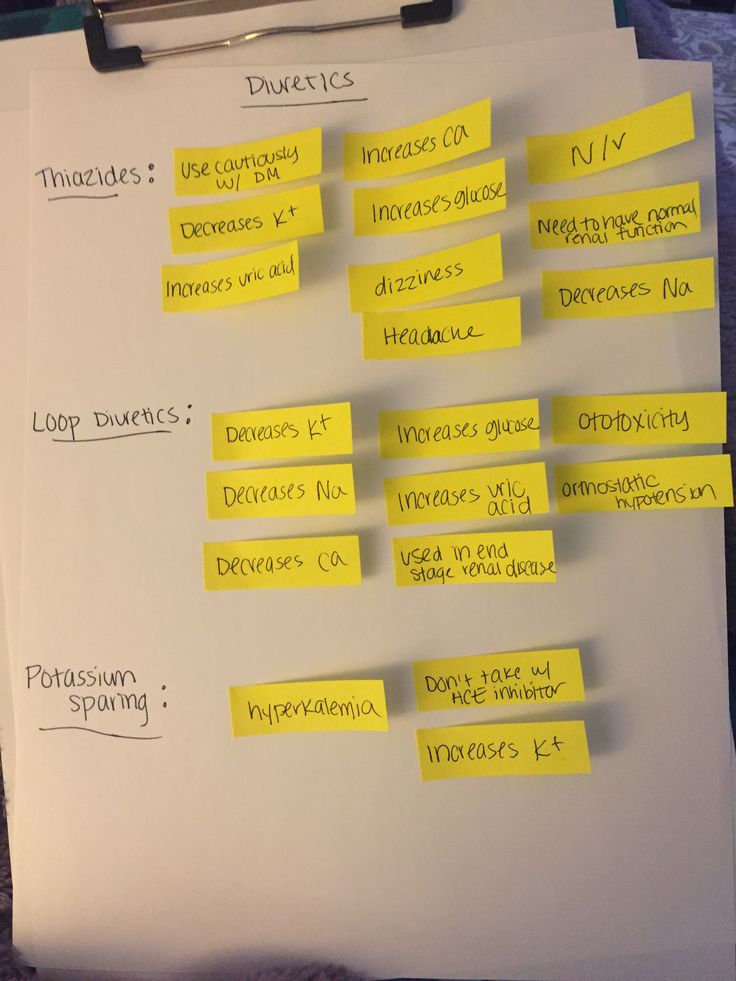 Diuretics
Thiazides:
Use cautiously
w/ DM
Increases Ca
N/V
Decreases K+
Increases glucose
Need to have normal
renal function
Increases uric acid
dizziness
Decreases Na
Headache
Loop Diuretics:
Decreases K+
Increases glucose
Ototoxicity
Decreases Na
Increases uric
acid
orthostatic
hypotension
Decreases Ca
Used in end
stage renal disease
Potassium
sparing:
hyperkalemia
Don't take w/
ACE inhibitor
Increases K+